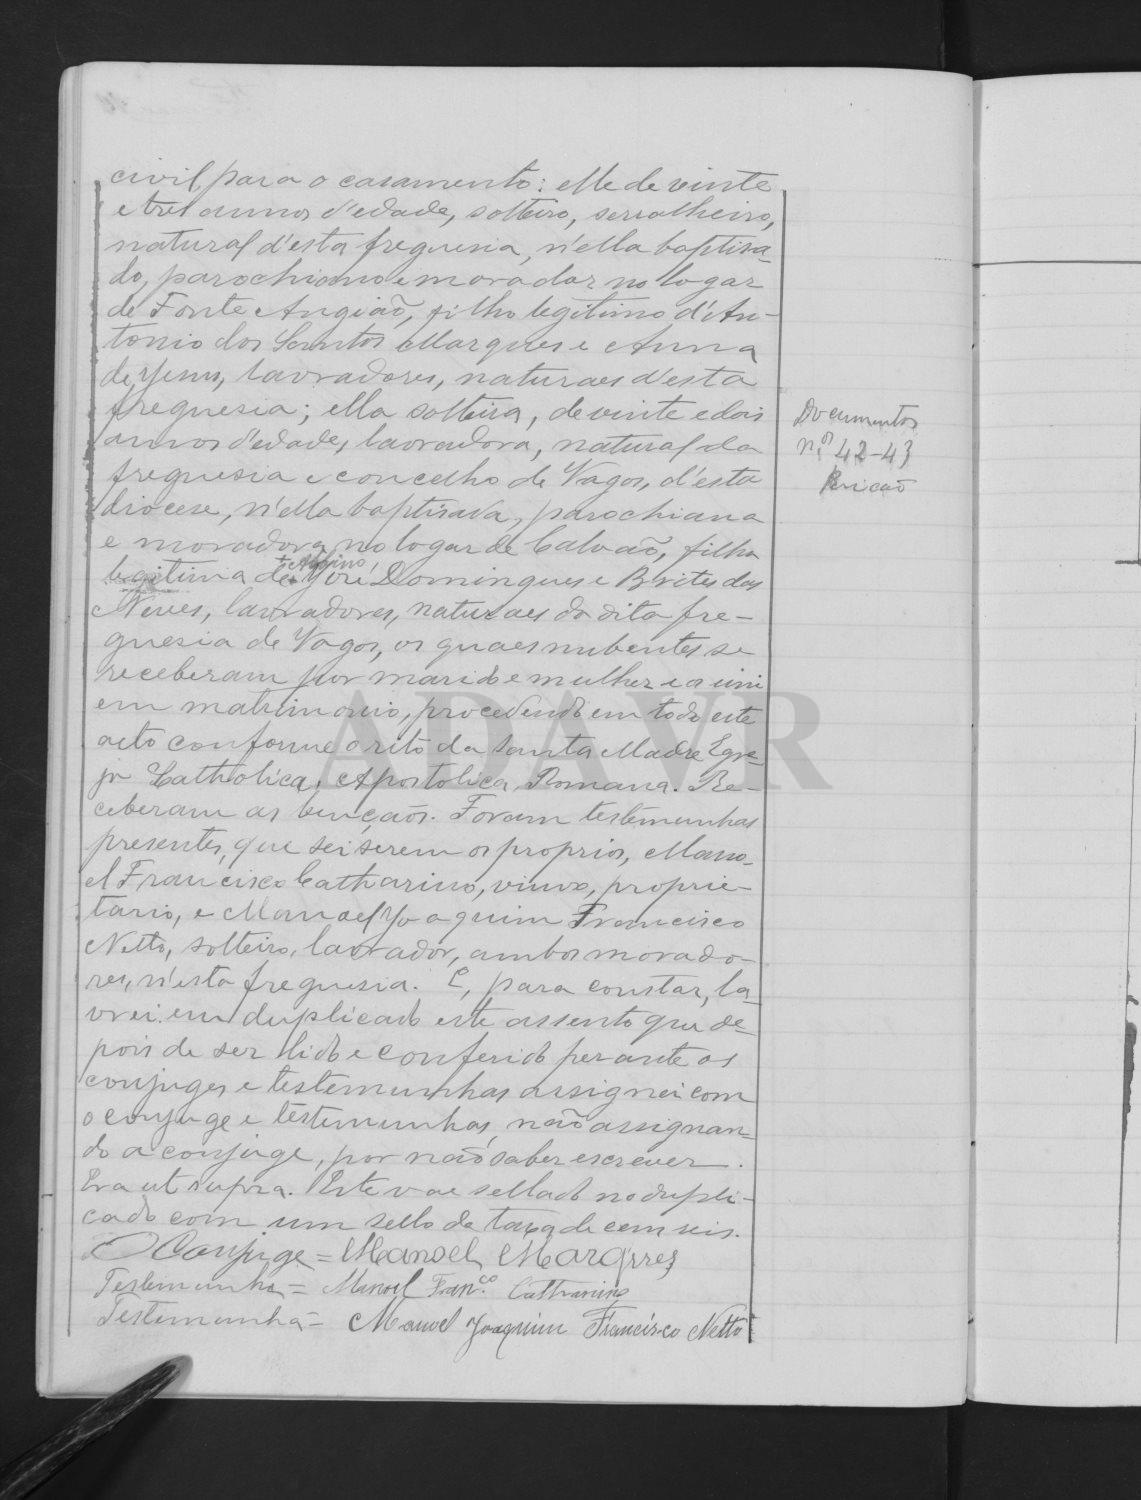 civil para o casamento: elle de vinte
e tres annos d'edade, solteiro, serralheiro,
natural d'esta freguesia, n'ella baptisa-
do, parochiano e morador no logar
de Fonte Angião, filho legitimo d'An-
tonio dos Santos Marques e Anna
de Jesus, lavradores, naturaes d'esta
freguesia; ella solteira, de vinte e dois
annos d'edade, lavradora, natural da
freguesia e concelho de Vagos, d'esta
diocese, n'ella baptisada, parochiana
e moradora no logar de Calvão, filha
legitima de José Domingues e Brites das
Neves, lavradores, naturaes da dita fre-
guesia de Vagos, os quaes nubentes se
receberam por marido e mulher e os uni
em matrimonio, procedendo em todo este
acto conforme o rito da Santa Madre Egre-
ja Catholica, Apostolica, Romana. Re-
ceberam as bençãos. Foram testemunhas
presentes, que sei serem os proprios, Mano-
el Francisco Catharino, viuvo, proprie-
tario, e Manoel Joaquim Francisco
Netto, solteiro, lavrador, ambos morado-
res, n'esta freguesia. E, para constar, la-
vrei em duplicado este assento que de-
pois de ser lido e conferido perante os
conjuges e testemunhas assignei com
o conjuge e testemunhas, não assignan-
do a conjuge, por não saber escrever.
Era ut supra. Este vae sellado no dupli-
cado com um sello da taxa de cem reis.
O Conjuge = Manoel Marques
Testemunha = Manoel Fran.co Catharino
Testemunha = Manoel Joaquim Francisco Netto
Documentos
n.os 42-43
ADAVR